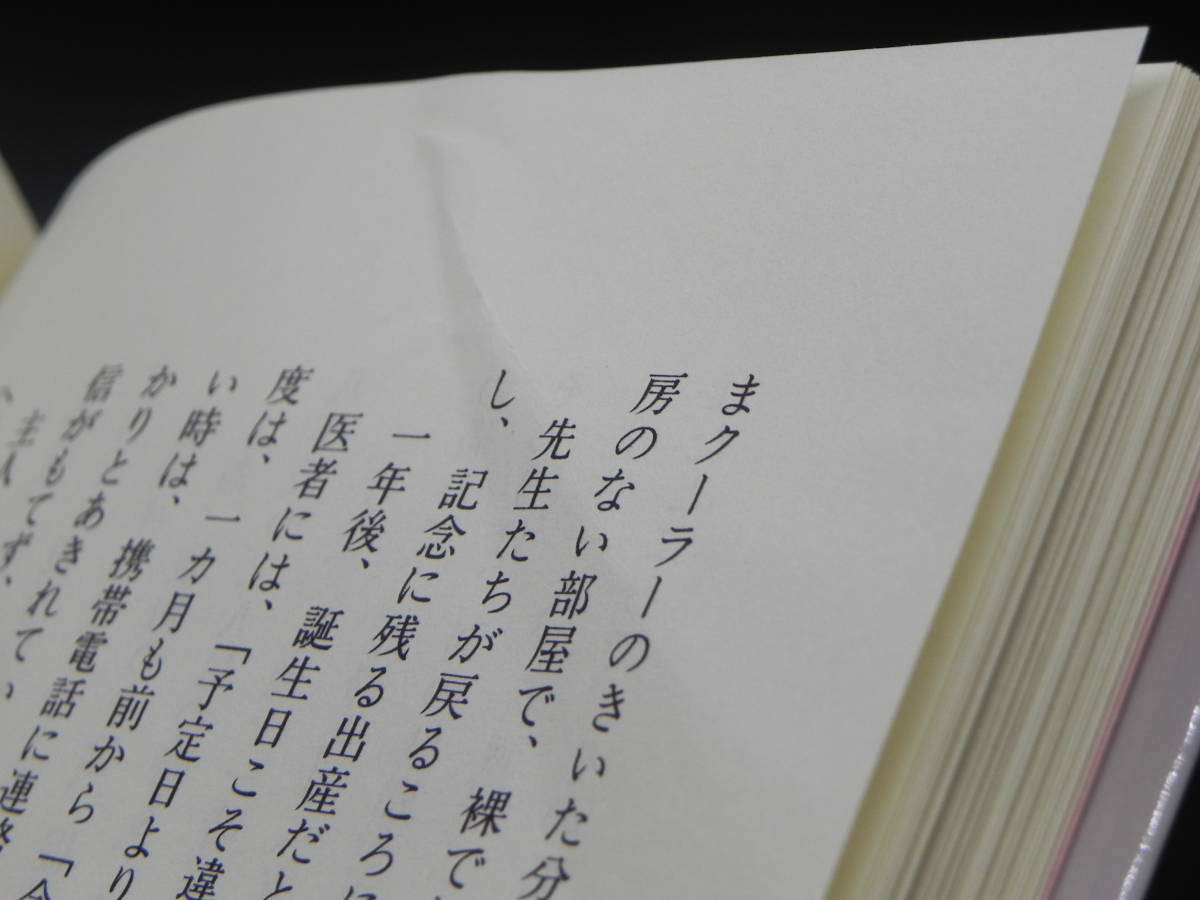 まクーラーのきいた分
房のない部屋で、裸で
先生たちが戻るころに
し、記念に残る出産だと
一年後、誕生日こそ違
医者には、「予定日より
度は、一カ月も前から「今
い時は、携帯電話に連絡
かりとあきれてい
信がもてず、
主人